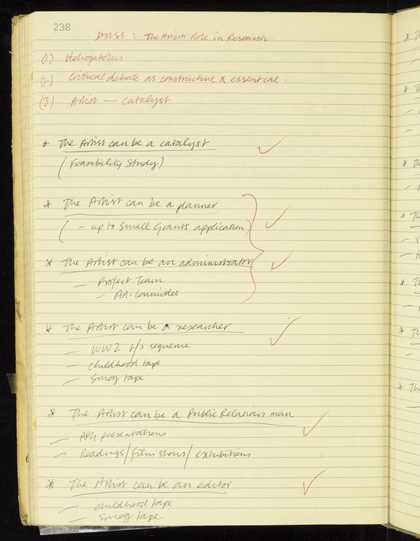 238
DHSS : The Artist's Role in Research
(1) Heliogabolus
(2) Critical debate as constructive & essential
(3) Artist — catalyst
* The Artist can be a catalyst
(Feasibility Study)
* The Artist can be a planner
(— up to Small Grants application
* The Artist can be an administrator
— Project Team
— AA. Committee
* The Artist can be a researcher
— WW2 t/s sequence
— childhood tape
— Smog tape
* The Artist can be a Public Relations man
— APG presentations
— Readings/film shows/exhibitions
* The Artist can be an editor
— childhood tape
— Smog tape